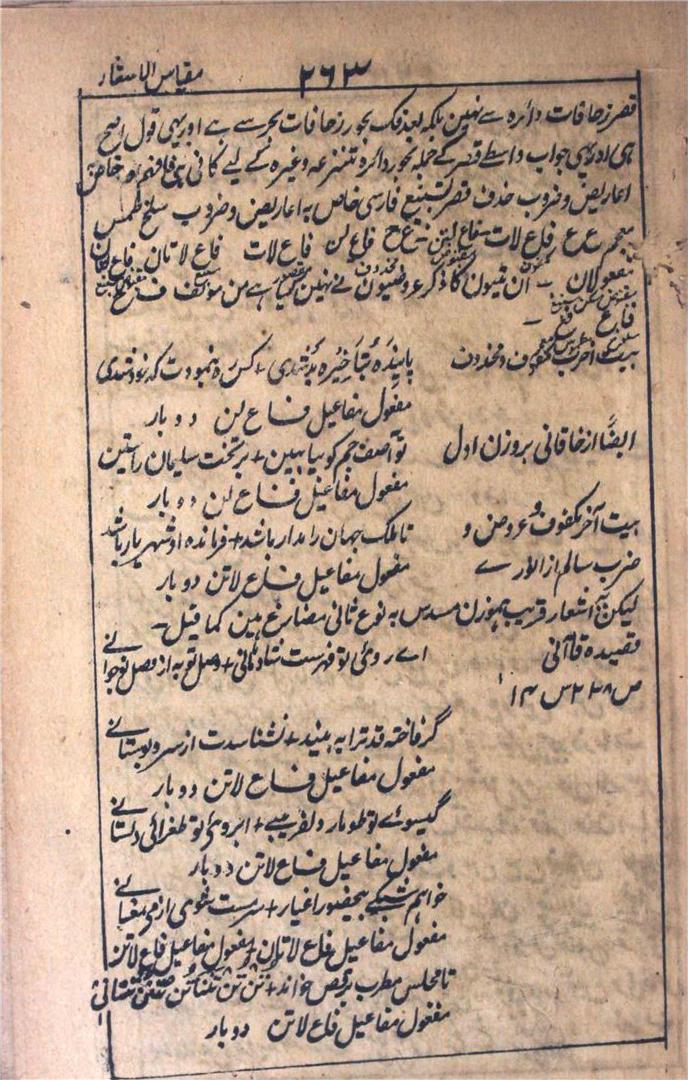 مقیاس الاسفار
۲۶۳
قصر زحافات دائرہ سے نہین بلکہ بعد فک بحور زحافات بحر سے ہے اور یہی قول اصح
ہی اور یہی جواب واسطے قصر کے جملہ بحور دائرہ منتزعہ وغیرہ کے لیے کافی ہی فافہم خاص
اعاریض و ضروب حذف قصر تسبیغ فارسی خاص بہ اعاریض و ضروب سلخ طمس
فاع لات مفاعیلن فاع لن فاع لات فاع لاتان
مفعولان - ان تینون کا ذکر عروضیون نے نہین کیا ہے من مؤلف
فاع -
بیت اخرب مکفوف و محذوف پایندہ خیرہ بندی + کس رہ ننمودت کہ
مفعول مفاعیل فاع لن دو بار
ایضًا از خاقانی بروزن اول تو آصف جم کو بیا ببین + بر تخت سلیمان راستین
مفعول مفاعیل فاع لن دو بار
بیت آخر مکفوف و عروض و تا ملک جہان را مدار باشد + فرماندہ او شہریار باشد
ضرب سالم از انورے مفعول مفاعیل فاع لاتن دو بار
لیکن یہ اشعار قریب ہموزن مسدس بہ نوع ثانی مضارع ہین کما قیل -
قصیدہ قاآنی اے روئ تو فہرست شادمانی + وصل تو بہ از فصل نوجوانے
ص ۲۳۸ س ۱۴
گر فاختہ قد ترا بہ بیند + نشناسدت از سرو بوستانے
مفعول مفاعیل فاع لاتن دو بار
گیسوے تو طومار دلفریبے + ابروئ تو طغرائی دلستانے
مفعول مفاعیل فاع لاتن دو بار
خواہم شبکے بیحضور اغیار + سرمست شوی از می مغانے
مفعول مفاعیل فاع لاتان مفعول مفاعیل فاع لاتن
تا مجلس مطرب برقص خواند + تن تن
مفعول مفاعیل فاع لاتن دو بار